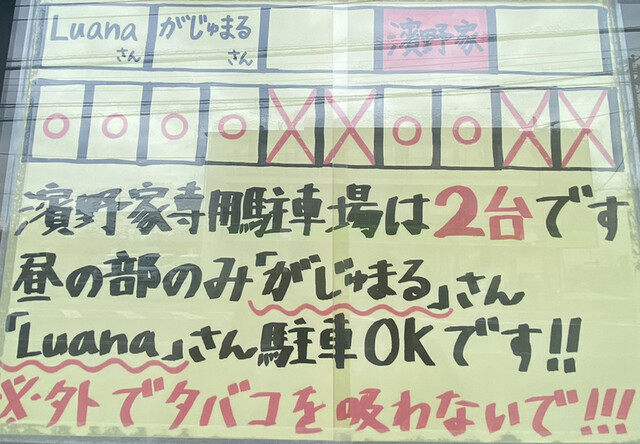 Luanaさん がじゅまるさん 濱野家
○ ○ ○ ○ × × ○ ○ × ×
濱野家専用駐車場は2台です
昼の部のみ「がじゅまる」さん
「Luana」さん駐車OKです!!
※外でタバコを吸わないで!!!